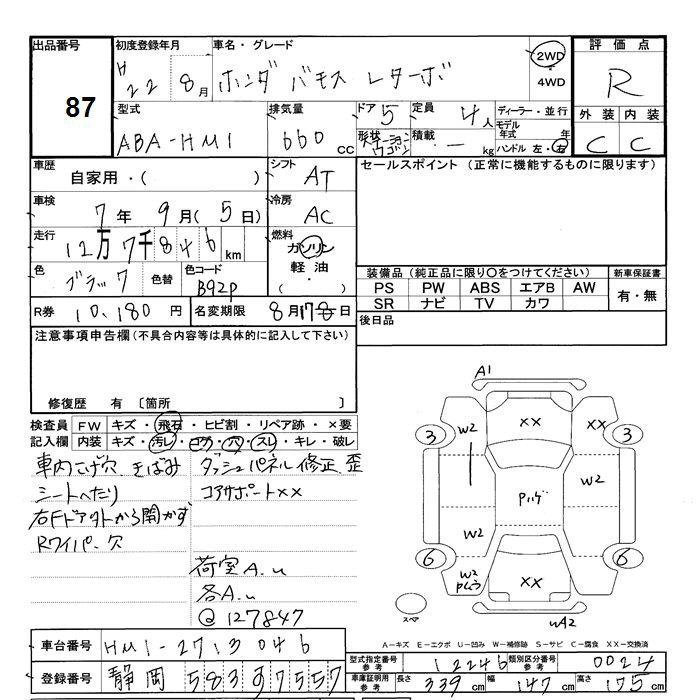 出品番号
87
初度登録年月
H22 8月
車名・グレード
ホンダ バモス Lターボ
2WD
・
4WD
評価点
R
型式
ABA-HM1
排気量
660 CC
ドア 5
形状
定員 4人
積載 - kg
ディーラー・並行
モデル年式 年
ハンドル 左・右
外装 内装
C C
車歴
自家用・( )
シフト
AT
車検
7年 9月( 5日)
冷房
AC
走行
12万7千846km
燃料
ガソリン
軽油・
( )
色
ブラック
色替
色コード
B92P
R券 10,180円
名変期限 8月17日
セールスポイント (正常に機能するものに限ります)
装備品(純正品に限り○をつけてください)
新車保証書
PS PW ABS エアB AW
SR ナビ TV カワ
有・無
後日品
注意事項申告欄(不具合内容等は具体的に記入して下さい)
修復歴 有 〔箇所
検査員記入欄
FW キズ・飛石・ヒビ割・リペア跡・×要
内装 キズ・汚レ・コゲ・穴・スレ・キレ・破レ
車内こげ穴 きばみ
シートへたり
右Fドアソトから開かず
Rワイパー欠
ダッシュパネル修正、歪
コアサポートXX
荷室A.u
各A.u
@127847
A1
XX
XX
W2
3
3
W2
Pハゲ
W2
W2
6
6
XX
スペア
uA2
A-キズ E-エクボ U-凹み W-補修跡 S-サビ C-腐食 XX-交換済
車台番号 HM1-2713046
登録番号 静岡 583
型式指定番号 参考 12246
類別区分番号 参考 0024
車庫証明用 参考 長さ 339cm 幅 147cm 高さ 175cm